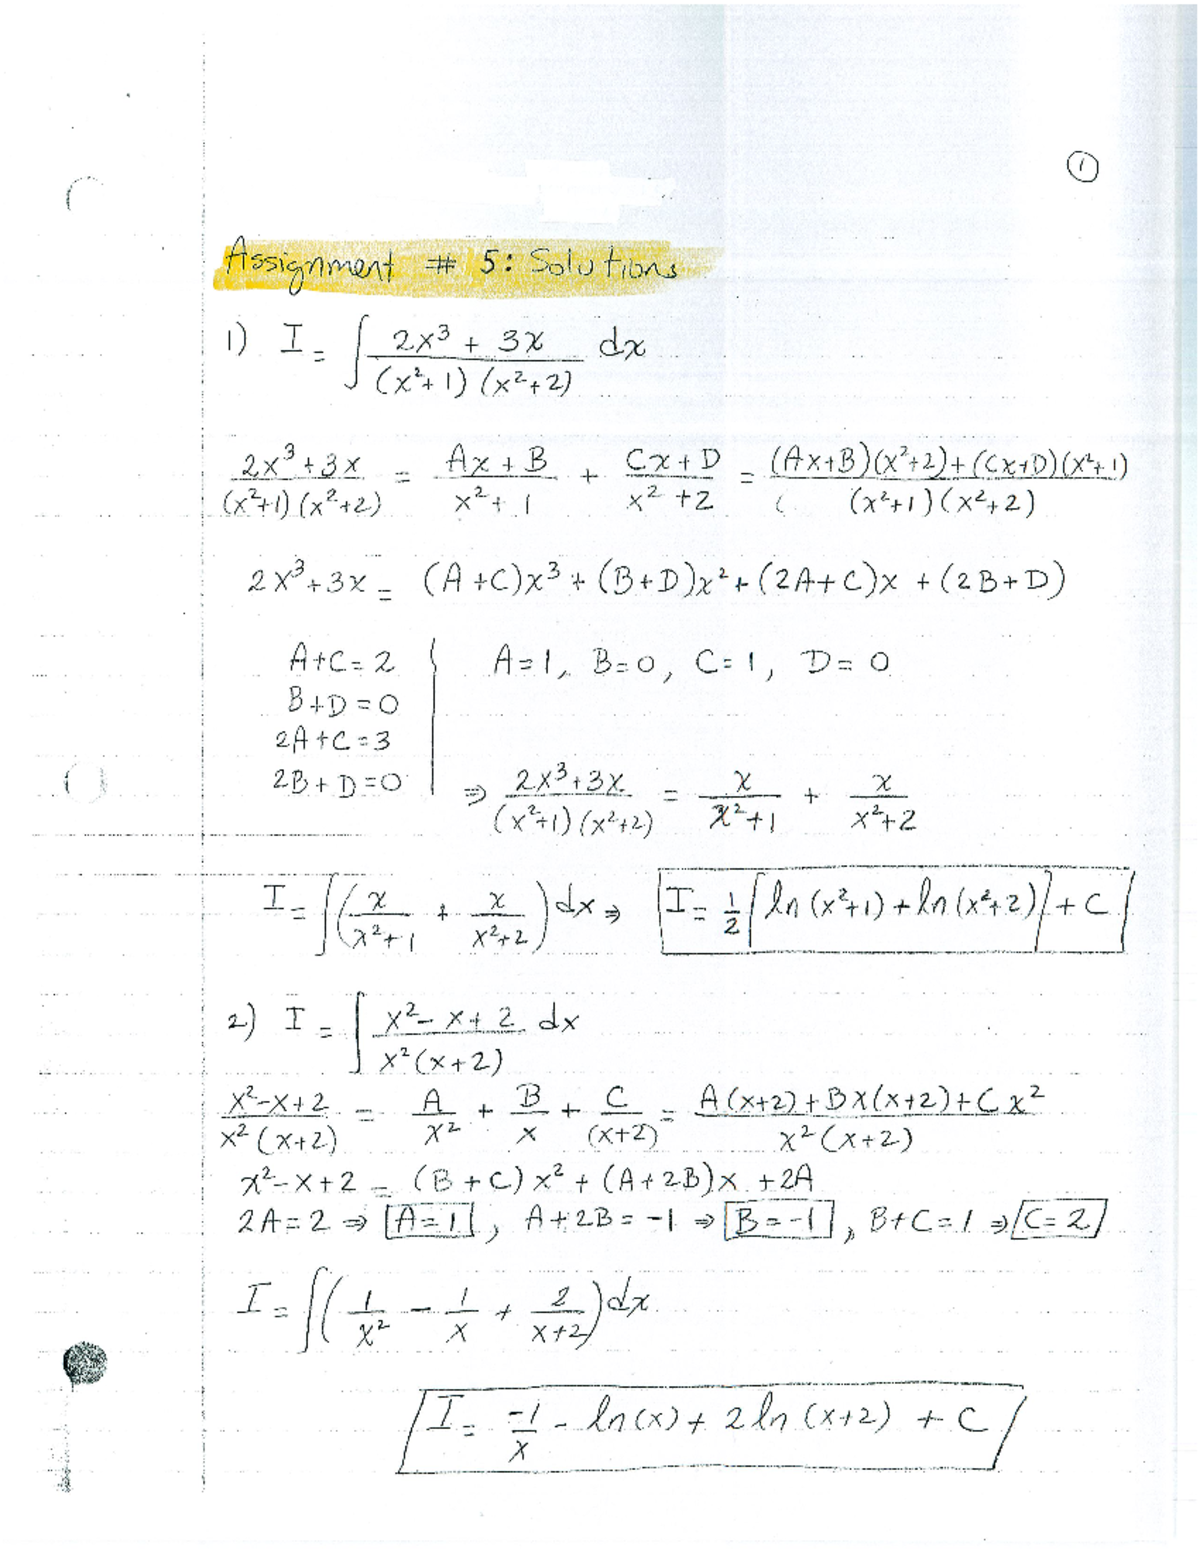 ①
Assignment # 5: Solutions
1) I = ∫ (2x³ + 3x)/((x²+1)(x²+2)) dx
(2x³+3x)/((x²+1)(x²+2)) = (Ax+B)/(x²+1) + (Cx+D)/(x²+2) = ((Ax+B)(x²+2)+(Cx+D)(x²+1))/((x²+1)(x²+2))
2x³+3x = (A+C)x³ + (B+D)x² + (2A+C)x + (2B+D)
A+C=2 A=1, B=0, C=1, D=0
B+D=0
2A+C=3
2B+D=0 ⇒ (2x³+3x)/((x²+1)(x²+2)) = x/(x²+1) + x/(x²+2)
I = ∫(x/(x²+1) + x/(x²+2))dx ⇒ I = 1/2 [ln(x²+1) + ln(x²+2)] + C
2) I = ∫ (x²-x+2)/(x²(x+2)) dx
(x²-x+2)/(x²(x+2)) = A/x² + B/x + C/(x+2) = (A(x+2)+Bx(x+2)+Cx²)/(x²(x+2))
x²-x+2 = (B+C)x² + (A+2B)x + 2A
2A=2 ⇒ A=1, A+2B=-1 ⇒ B=-1, B+C=1 ⇒ C=2
I = ∫(1/x² - 1/x + 2/(x+2))dx
I = -1/x - ln(x) + 2 ln(x+2) + C